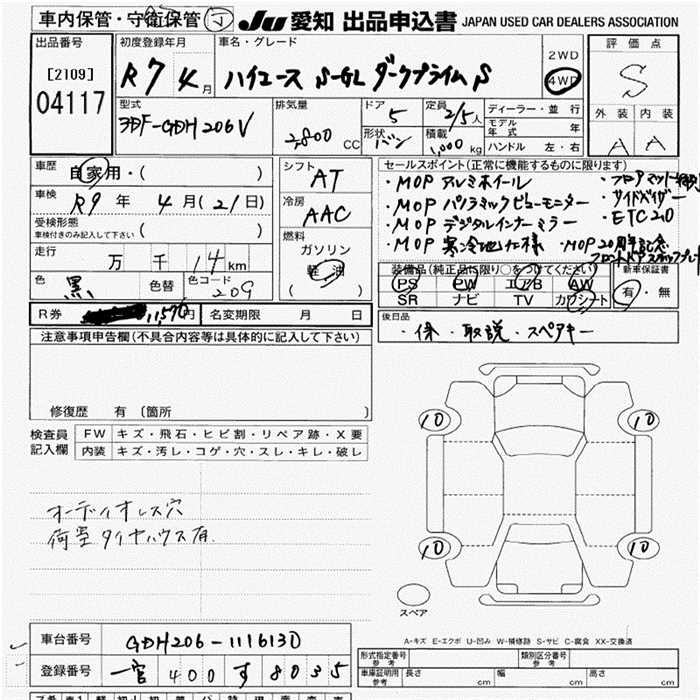 車内保管・守衛保管
JU 愛知 出品申込書 JAPAN USED CAR DEALERS ASSOCIATION
出品番号
[2109]
04117
初度登録年月
R7 4月
車名・グレード
ハイエース S-GL ダークプライムS
2WD
4WD
評価点
S
外装 内装
A A
型式
3DF-GDH206V
排気量
2800 CC
ドア
5
形状 バン
定員
2/5人
積載
1,000 kg
ディーラー・並行
モデル年式 年
ハンドル 左・右
車歴
自家用・( )
車検
R9年 4月(21日)
受検形態
車検付きのみ記入して下さい ( )
走行
万 千 14 km
色
黒
色替
色コード
209
シフト
AT
冷房
AAC
燃料
ガソリン
軽油
( )
セールスポイント(正常に機能するものに限ります)
・MOP アルミホイール
・MOP パノラミックビューモニター
・MOP デジタルインナーミラー
・MOP 寒冷地仕様
・サイドバイザー
・ETC2.0
・MOP 20周年記念
装備品(純正品に限り○をつけてください)
PS PW エアB AW
SR ナビ TV カワシート
新車保証書
有・無
R券 11,570円
名変期限 月 日
後日品
・保 ・取説 ・スペアキー
注意事項申告欄(不具合内容等は具体的に記入して下さい)
修復歴 有 〔箇所 〕
検査員記入欄
FW キズ・飛石・ヒビ割・リペア跡・X要
内装 キズ・汚レ・コゲ・穴・スレ・キレ・破レ
オーディオレス穴
荷室タイヤハウスキズ有
10 10
10 10
スペア
A-キズ E-エクボ U-凹み W-補修跡 S-サビ C-腐食 XX-交換済
車台番号
GDH206-1116130
登録番号
一宮 400 す 8035
形式指定番号 参考
類別区分番号 参考
車庫証明用 参考 長さ cm 幅 cm 高さ cm